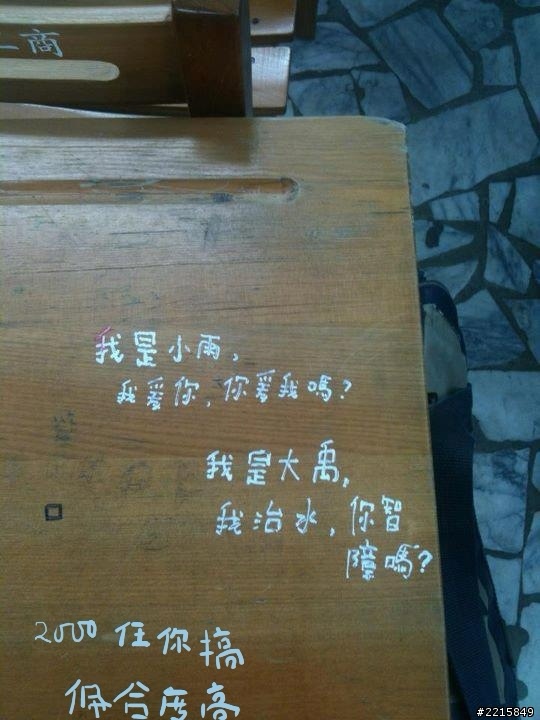 商
我是小雨,
我爱你,你爱我嗎?
我是大禹,
我治水,你智
障嗎?
2000任你搞
佩合度高
#2215849